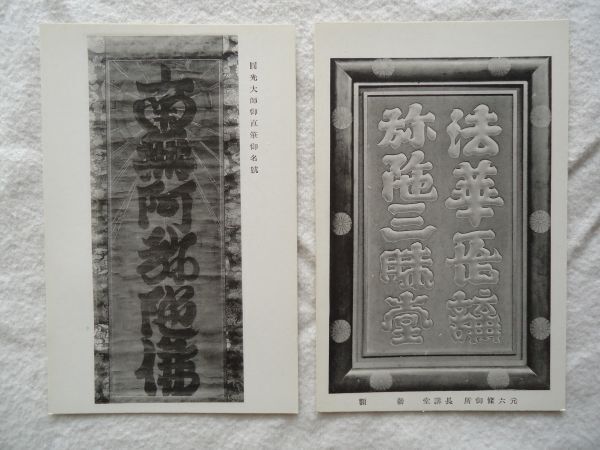 圓光大師御直筆御名號
南無阿弥陀佛
法華長講
弥陀三昧堂
元六條御所 長講堂 勅額